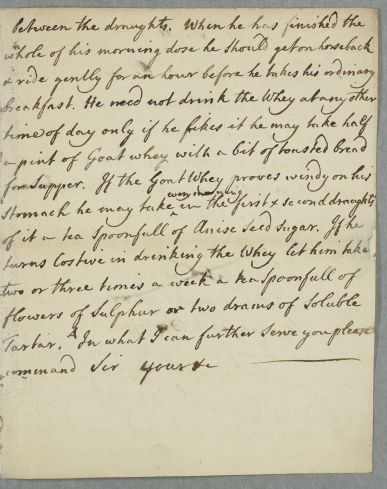 between the draughts. When he has finished the
whole of his morning dose he should get on horseback
& ride gently for an hour before he takes his ordinary
breakfast. He need not drink the Whey at any other
time of day only if he likes it he may take half
a pint of Goat whey with a bit of toasted bread
for Supper. If the Goat Whey proves windy on his
stomach he may take in the first & second draughts
of it a tea spoonfull of Anise Seed sugar. If he
turns Costive in drinking the Whey let him take
two or three times a week a tea spoonfull of
flowers of Sulphur or two drams of Soluble
Tartar. In what I can further serve you please
command Sir yours &c